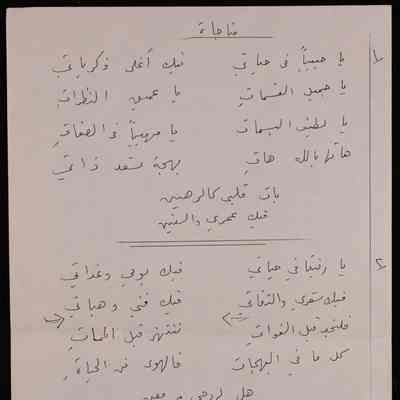 مناجاة
١
يا حبيباً في حياتي فيك أغلى ذكرياتي
يا جميل القسمات يا عميق النظرات
يا لطيف البسمات يا مهيباً في الصفات
هاتها بالله هات بهجة تسعد ذاتي
بات قلبي كالرهين
فيك عمري والسنين
٢
يا رفيقاً في حياتي فيك يومي وغداتي
فيك شعري والتفاتي فيك فني وهباتي
فلنجد قبل الفوات ننتهز قبل الممات
كل ما في البهجات فالهوى فن الحياة
هل لروحي